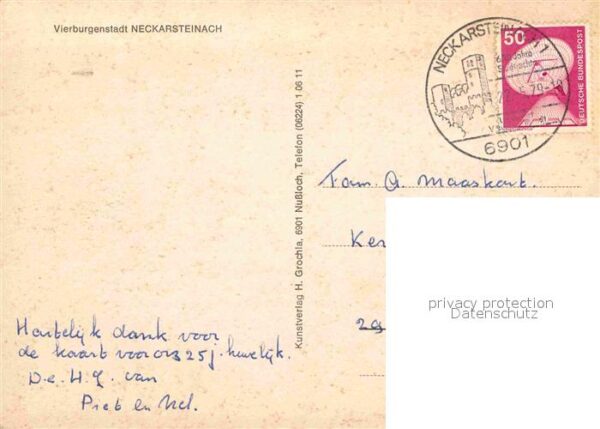 Vierburgenstadt NECKARSTEINACH
NECKARSTEINACH 1
6901
50
DEUTSCHE BUNDESPOST
Kunstverlag H. Grochla, 6901 Nußloch, Telefon (06224) 1 06 11
Fam. A. Maaskant.
Ker
29
privacy protection
Datenschutz
Hartelijk dank voor
de kaart voor ons 25 j. huwelijk.
De H.G. van
Piet en Nel.